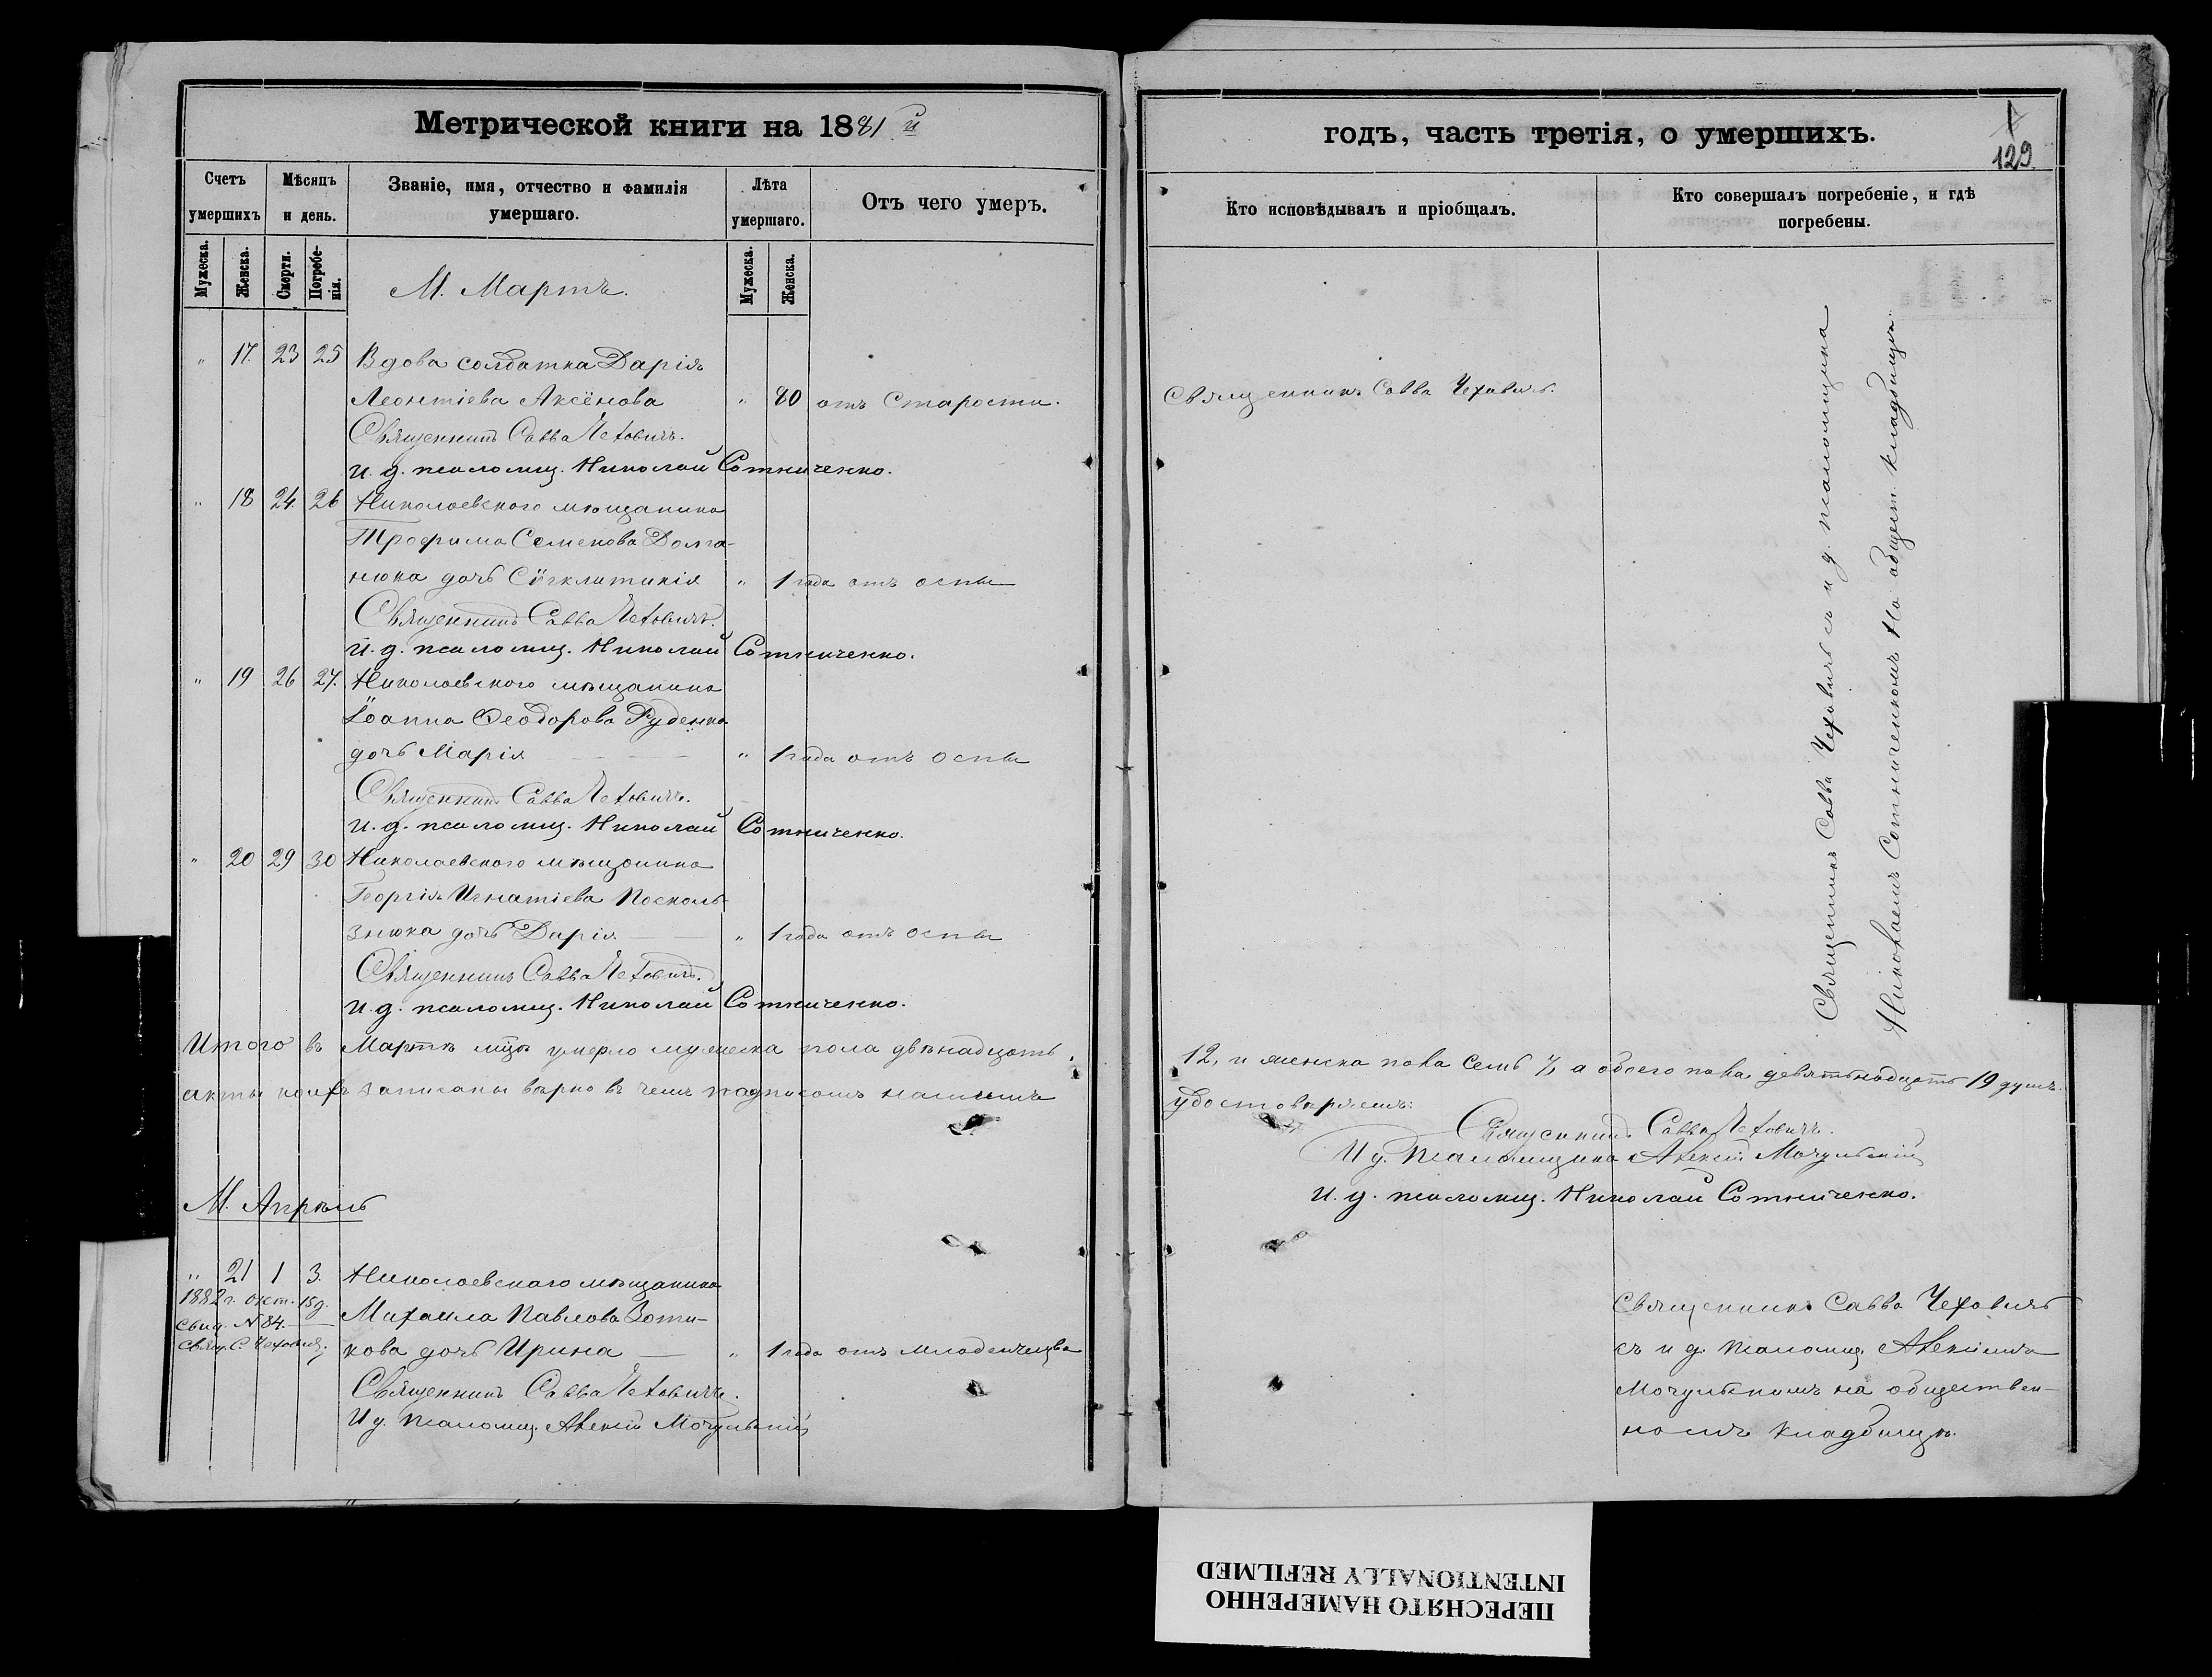 Метрической книги на 1881 й
Счетъ умершихъ
Мѣсяцъ и день.
Званіе, имя, отчество и фамилія умершаго.
Лѣта умершаго.
Отъ чего умеръ.
Мужеска.
Женска.
Смерти.
Погребенія.
М. Мартъ.
Мужеска.
Женска.
" 17. 23 25 Вдова солдатка Дарія
Леонтіева Аксёнова " 80 отъ Старости.
Священникъ Савва Чеховичъ.
и. д. псаломщ. Николай Сотниченко.
" 18 24. 26 Николаевского мѣщанина
Трофима Семенова Долга-
нюка дочь Сѵгклитикія " 1 года отъ оспы
Священникъ Савва Чеховичъ.
и. д. псаломщ. Николай Сотниченко.
" 19 26 27. Николаевского мѣщанина
Іоанна Ѳеодорова Руденка
дочь Марія " 1 года отъ оспы
Священникъ Савва Чеховичъ.
и. д. псаломщ. Николай Сотниченко.
" 20 29 30 Николаевского мѣщанина
Георгія Игнатіева Посколь-
знюка дочь Дарія " 1 года отъ оспы
Священникъ Савва Чеховичъ.
и. д. псаломщ. Николай Сотниченко.
Итого въ Мартѣ мцѣ умерло мужеска пола двѣнадцать
акты коихъ записаны вѣрно въ чемъ подписомъ нашимъ
М. Апрѣль
" 21 1 3. Николаевскаго мѣщанина
1882 г. окт. 15 д.
Михаила Павлова Зоти-
свид. № 84.
Свящ. С. Чеховичъ
кова дочь Ирина " 1 года отъ младенчества
Священникъ Савва Чеховичъ.
И д. псаломщ. Алексій Мочульскій
годъ, часть третія, о умершихъ.
1
129
Кто исповѣдывалъ и пріобщалъ.
Кто совершалъ погребеніе, и гдѣ погребены.
Священникъ Савва Чеховичъ.
Священникъ Савва Чеховичъ съ и д. псаломщика
Николаемъ Сотниченкомъ на общест. кладбищѣ.
12, и женска пола семь 7, а обоего пола девятьнадцать 19 душъ.
удостовѣряемъ:
Священникъ Савва Чеховичъ.
И д. псаломщика Алексій Мочульскій
и. д. псаломщ. Николай Сотниченко.
Священникъ Савва Чеховичъ
съ и д. псаломщ. Алексіемъ
Мочульскимъ на обществен-
номъ кладбищѣ.
ПЕРЕСНЯТО НАМЕРЕННО
INTENTIONALLY REFILMED